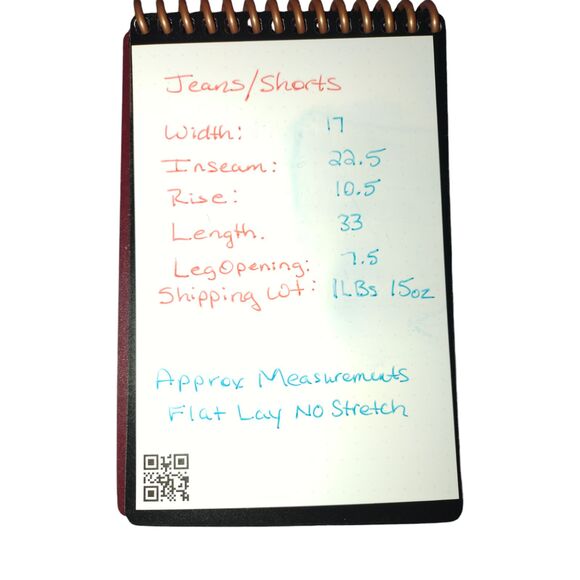 Jeans/Shorts
Width: 17
Inseam: 22.5
Rise: 10.5
Length. 33
Leg Opening: 7.5
Shipping Wt: 1LBs 15oz
Approx Measurements
Flat Lay No Stretch